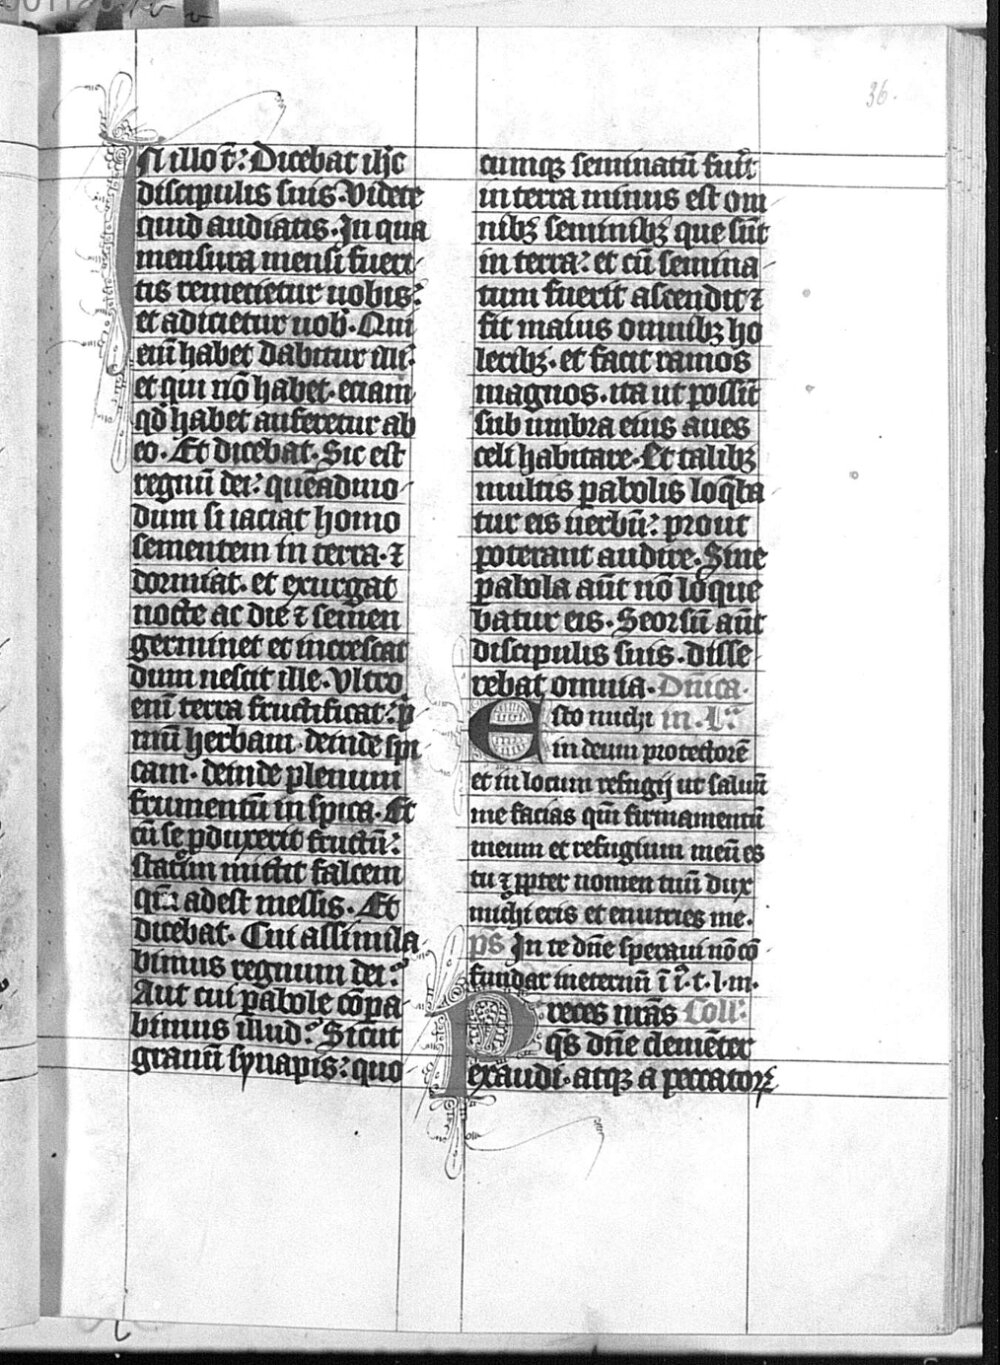 36.
In illo t̄: Dicebat ih̄c
discipulis suis. Videte
quid audiatis. In qua
mensura mensi fueri
tis remecietur uobis:
et adicietur nob̄. Qui
eni᷒ habet dabitur illi:
et qui nō habet. eciam
qd̄ habet auferetur ab
eo. Et dicebat. Sic est
regnū dei: quēadmo
dum si iaciat homo
sementem in terra. ⁊
dormiat. et exurgat
nocte ac die ⁊ semen
germinet et increscat
dum nescit ille. Vltro
enī terra fructificat: p̄
mū herbam. deinde spi
cam. deinde plenum
frumentū in spica. Et
cū se ꝓduxerit fructū:
statim mittit falcem
qm̄ adest messis. Et
dicebat. Cui assimila
bimus regnum dei?
Aut cui ꝑabole cōpa
bimus illud? Sicut
granū synapis: quo
cumqꝫ seminatū fuīt
in terra minus est om
nibꝫ seminibꝫ que sūt
in terra: et cū semina
tum fuerit ascendit ⁊
fit maius omnibꝫ ho
leribꝫ. et facit ramos
magnos. ita ut possīt
sub umbra eius aues
celi habitare. Et talibꝫ
multis ꝑabolis loq̄ba
tur eis uerbū: prout
poterant audire. Sine
ꝑabola aūt nō loque
batur eis. Seorsū aūt
discipulis suis. disse
rebat omnia. Dn̄ica.
Esto michi in .L.
in deum protectorē
et in locum refugij ut saluū
me facias qm̄ firmamentū
meum et refugium meū es
tu ⁊ ꝓpter nomen tuū dux
michi eris et enutries me.
ps In te dn̄e speraui nō cō
fundar ineternū ī i. t. l. m.
Preces nr̄as Coll̄.
qs̄ dn̄e clemēter
exaudi. atqꝫ a peccatoꝝ